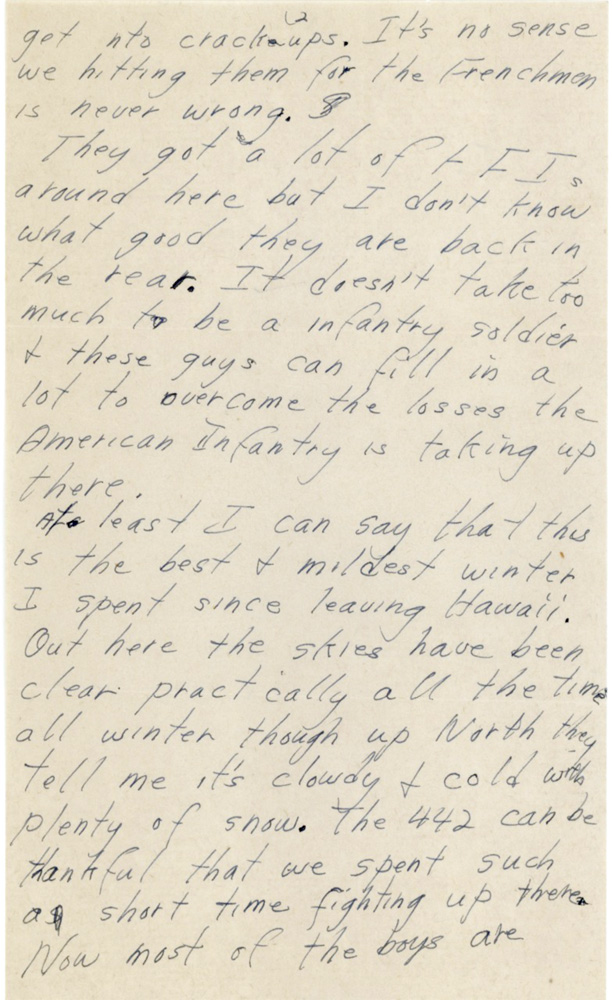 2
get nto crack-ups. It's no sense
we hitting them for the Frenchmen
is never wrong.
They got a lot of F F I s
around here but I don't know
what good they are back in
the rear. It doesn't take too
much to be a infantry soldier
& these guys can fill in a
lot to overcome the losses the
American Infantry is taking up
there.
At least I can say that this
is the best & mildest winter
I spent since leaving Hawaii.
Out here the skies have been
clear practically all the time
all winter though up North they
tell me it's clowdy & cold with
plenty of snow. The 442 can be
thankful that we spent such
a short time fighting up there.
Now most of the boys are